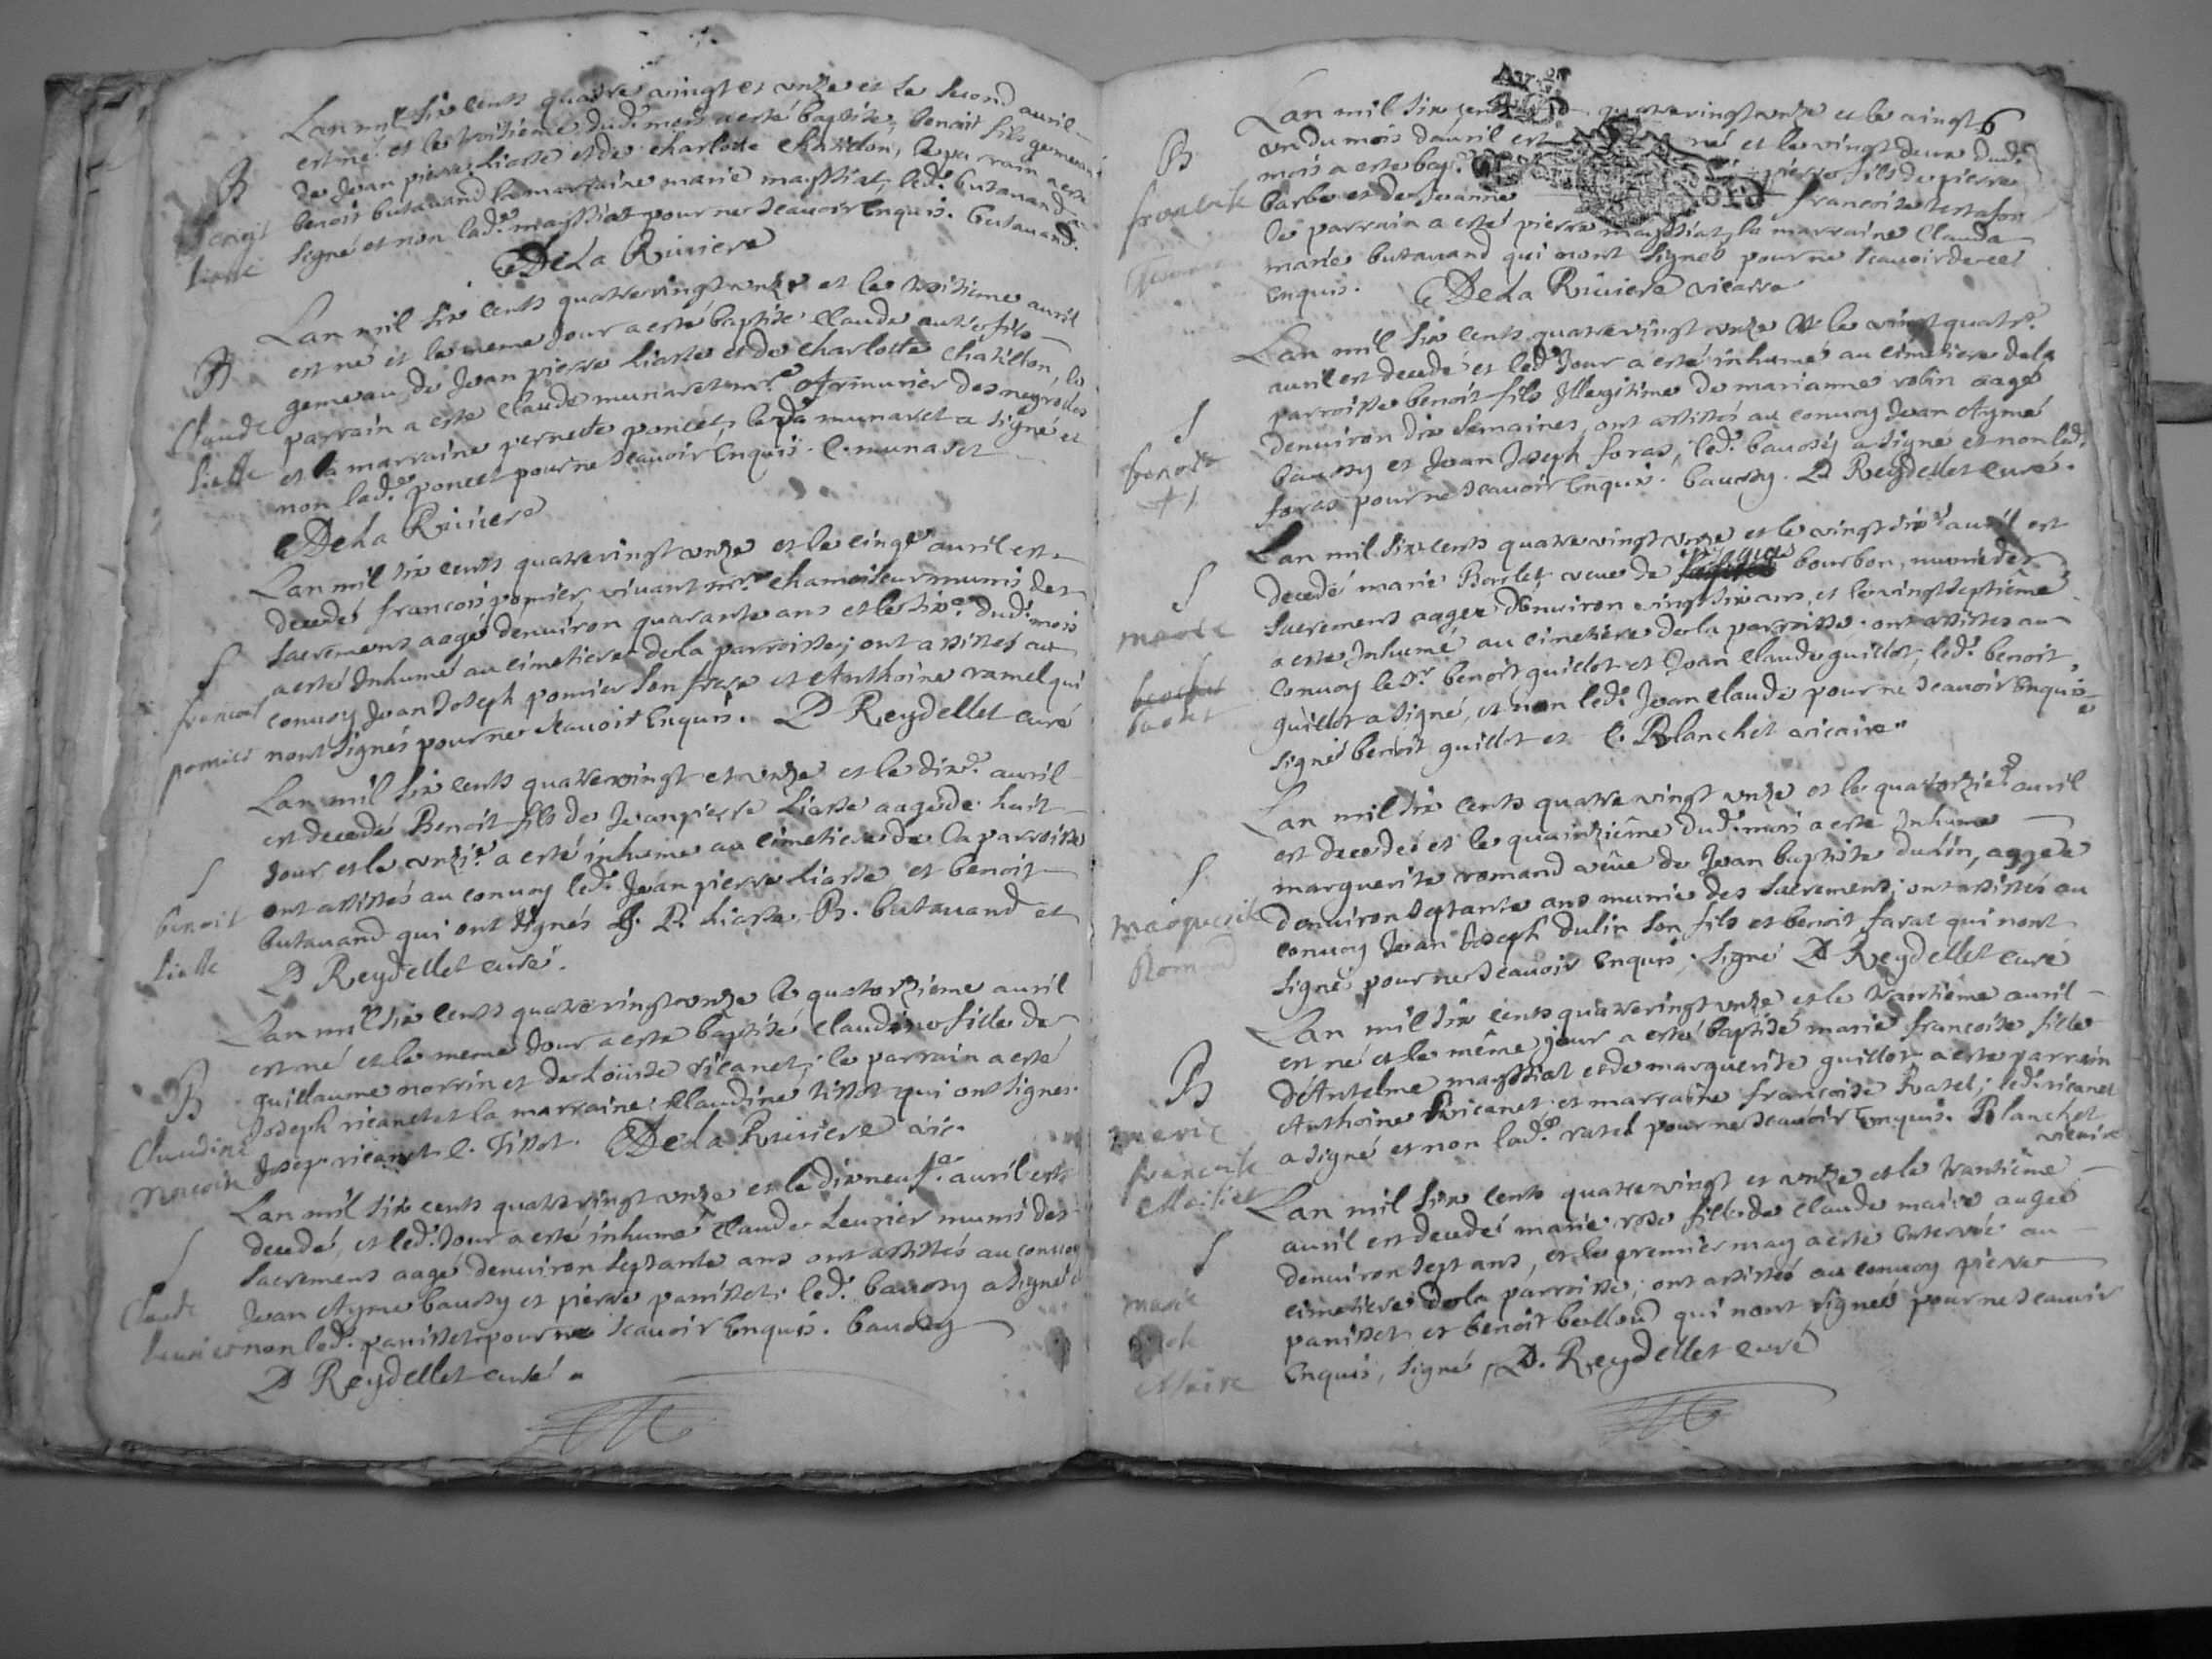 Lan mil six cents quatre vingt et unze et le second auril
est né et le troisieme dud. mois a esté baptisé, benoit fils gemeau
de Jean pierre Liaste et de charlotte Chatillon, le parrain a esté
benoit butauand la marraine marie mayssiat, led. butauand a
signé et non lad. mayssiat pour ne scauoir Enquis. butauand.
DeLa Riuiere
B
benoit
liaste
Lan mil six cents quatre vingt unze et le troisieme auril
est né et le meme Jour a esté baptisé claude autre fils
gemeau de Jean pierre Liaste et de charlotte chatillon, le
parrain a esté claude munaret mr. Armurier des neyrolles
et la marraine pernette poncet, led. munaret a signé et
non lad. poncet pour ne scauoir Enquis. C. munaret
DeLa Riuiere
B
Claude
liasste
Lan mil six cents quatre vingt unze et le cinq. auril est
decedé francois pomier, viuant mr. chamoiseur muni des
sacremens aagé denuiron quarante ans et le six. dud. mois
a esté Inhumé au cimetiere de la parroisse; ont assistés au
conuoy Jean Joseph pomier son frere et Anthoine ramel qui
nont signés pour ne scauoir Enquis. D Reydellet curé
S
francois
pomier
Lan mil six cents quatre vingt et unze et le dix. auril
est decedé Benoit fils de Jean pierre Liaste aagé de huit
Jour et le unzi. a esté inhumé au cimetiere de la parroisse
ont assistés au conuoy led. Jean pierre Liaste et benoit
butauand qui ont signés J. P. Liaste B. butauand et
D Reydellet curé.
S
benoit
liasste
Lan mil six cents quatre vingt unze le quatorzieme auril
est né et le meme Jour a esté baptisé claudine fille de
guillaume morrin et de Loüise ricanet; le parrain a esté
Joseph ricanet et la marraine Claudine tissot qui ont signes.
Josep. ricanet C. Tissot. DeLa Riuiere vic.
B
Claudine
Lan mil six cents quatre vingt unze et le dixneuf. auril est
decedé, et led. Jour a esté inhumé claude Leurier muni des
sacremens aagé denuiron septante ans ont assistés au conuoy
Jean Ayme baussy et pierre panisset. led. baussy a signé
et non led. panisset pour ne scauoir Enquis. baussy
D Reydellet curé
S
Claude
leurier
6
Lan mil six cent quatre vingt unze et le vingt
un du mois dauril est né et le vingt deux dud.
mois a esté bap. pierre fils de pierre
barbe et de Jeanne francoise testafort
le parrain a esté pierre mayssiat, la marraine Clauda
marie butauand qui nont signés pour ne scauoir de ce
enquis. DeLa Riuiere vicaire
B
Lan mil six cents quatre vingt unze et le vingt quatr.
auril est decedé et led. Jour a esté inhumé au cimetiere dela
parroisse benoit fils Illegitime de marianne robin aagé
denuiron dix semaines, ont assistés au conuoy Jean Aymé
baussy et Jean Joseph foras, led. baussy a signé et non led.
foras pour ne scauoir Enquis. baussy. D Reydellet curé.
S
benoit
Lan mil six cents quatre vingt unze et le vingt six. auril est
decedé marie Borlet veue de bourbon, munie des
sacremens aagee denuiron vingt six ans, et le vingt septiême
a esté Inhumé au cimetiere de la parroisse. ont assistés au
conuoy le sr. benoit guillot et Jean claude guillot, led. benoit
guillot a signé, et non led. Jean claude pour ne scauoir Enquis
signé benoit guillot et C. Blanchet vicaire
S
marie
Lan mil six cents quatre vingt unze et le quatorzie. auril
est decedéé et le quainziême dud. mois a esté Inhumé
marguerite romand veüe de Jean baptiste dulin, aggée
denuiron septante ans munie des sacremens; ont assistés au
conuoy Jean Joseph dulin son fils et benoit farat qui nont
signé pour ne scauoir Enquis; signé D Reydellet curé
S
marguerite
Romand
Lan mil six cents quatre vingt unze et le trantiême auril
est né et le même jour a esté baptisé marie francoise fille
d'Antelme mayssiat et de marguerite guillot a esté parrain
Anthoine Ricanet et marraine francoise Ratel; led. ricanet
a signé et non lad. ratel pour ne scauoir Enquis. Blanchet
vicaire
B
marie
francoise
Lan mil six cents quatre vingt et unze et le trantiême
auril est decedéé marie rose fille de claude maire aagee
denuiron sept ans, et le premier may a esté Enterréé au
cimetiere de la parroisse; ont assistés au conuoy pierre
panisset et benoit bulloud qui nont signés pour ne scauoir
Enquis, signé D. Reydellet curé
S
marie
Maire